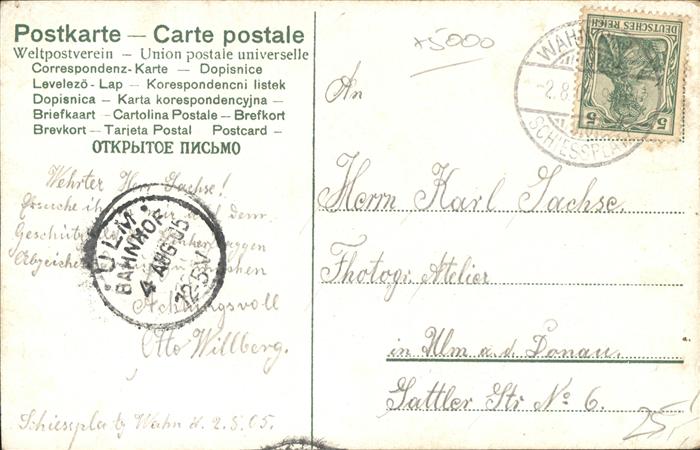 Postkarte — Carte postale
Weltpostverein — Union postale universelle
Correspondenz-Karte — Dopisnice
Levelező-Lap — Korespondencni listek
Dopisnica — Karta korespondencyjna —
Briefkaart — Cartolina Postale — Brefkort
Brevkort — Tarjeta Postal Postcard —
ОТКРЫТОЕ ПИСЬМО
x5000
DEUTSCHES REICH
5 5
WAHN
2.8.
SCHIESSPLATZ
An
Herrn Karl Sachse.
Photogr. Atelier
in Ulm a. d. Donau.
Sattler Str No 6.
25,-
Wehrter Herr Sachse!
Ersuche
Achtungsvoll
Otto Willberg.
Schiessplatz Wahn d. 2.8.05.
ULM
BAHNHOF
4 AUG 05
12-5V